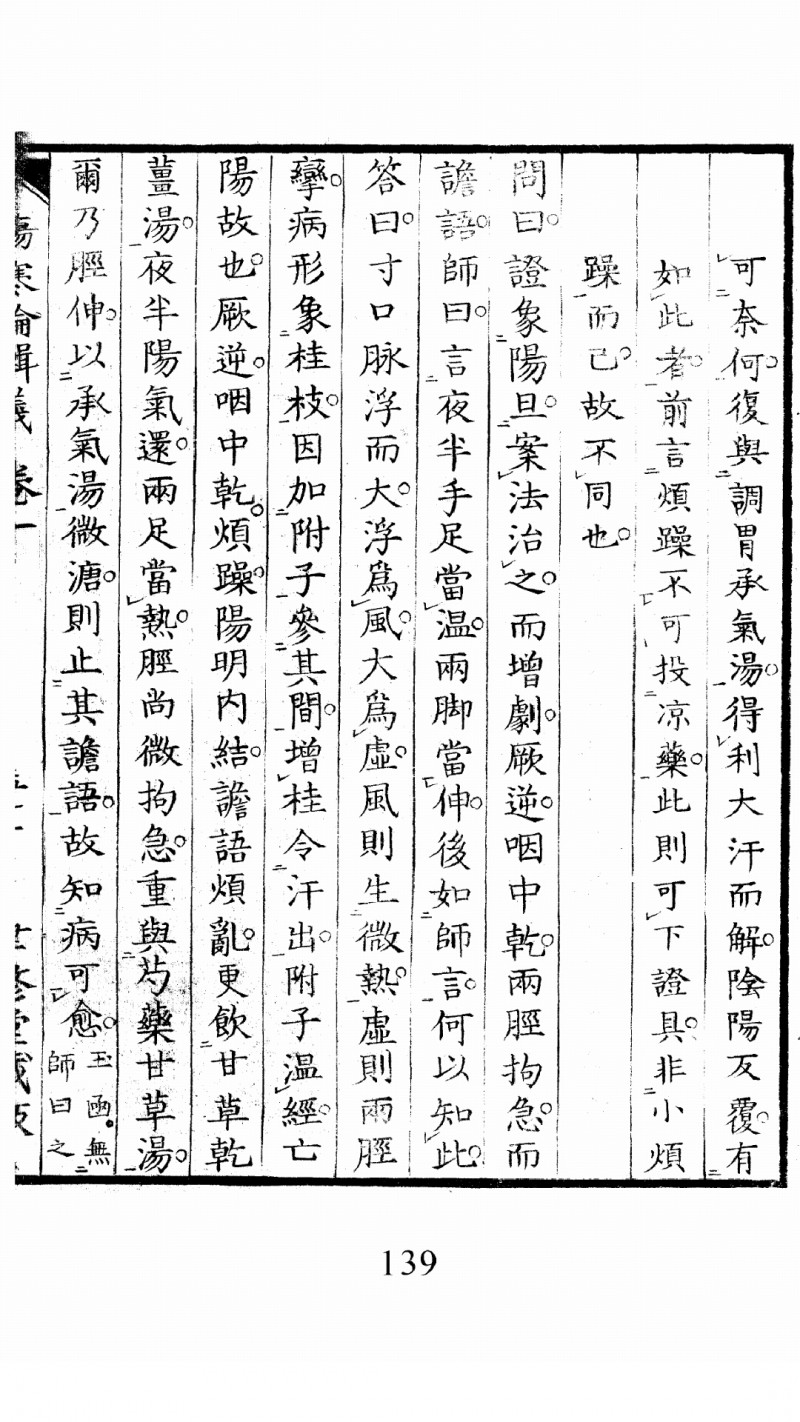 可奈何。復與調胃承氣湯。得利大汗而解。陰陽反覆。有
如此者。前言煩躁不可投凉藥。此則可下證具。非小煩
躁而已。故不同也。
問曰。證象陽旦。案法治之。而增劇。厥逆。咽中乾。兩脛拘急。而
譫語。師曰。言夜半手足當温。兩脚當伸。後如師言。何以知此。
答曰。寸口脉浮而大。浮爲風。大爲虛。風則生微熱。虛則兩脛
攣。病形象桂枝。因加附子參其間。增桂令汗出。附子温經。亡
陽故也。厥逆。咽中乾。煩躁。陽明内結。譫語煩亂。更飲甘草乾
薑湯。夜半陽氣還。兩足當熱。脛尚微拘急。重與芍藥甘草湯。
爾乃脛伸。以承氣湯微溏。則止其譫語。故知病可愈。玉函。無
師曰之
傷寒論輯義 卷一
139